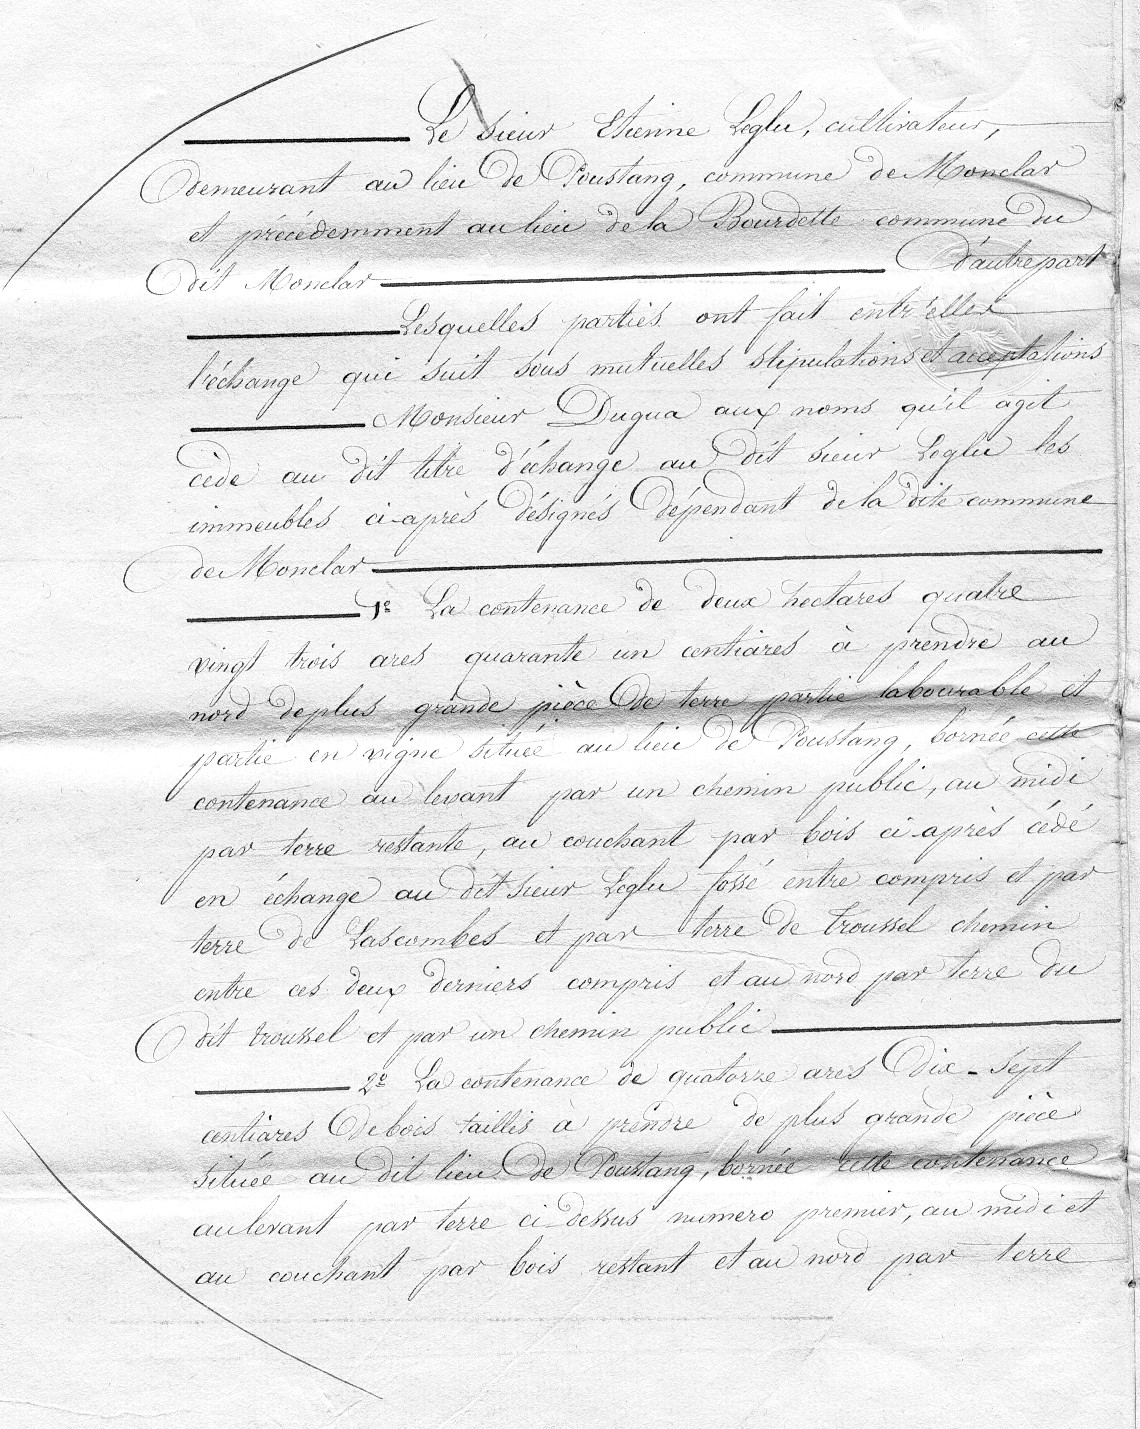 Le sieur Etienne Leglu, cultivateur,
demeurant au lieu de Poustang, commune de Monclar
et précédemment au lieu de la Bourdette commune du
dit Monclar d'autre part
Lesquelles parties ont fait entr'elles
l'échange qui suit sous mutuelles stipulations et acceptations
Monsieur Dugua aux noms qu'il agit
cède au dit titre d'échange au dit sieur Leglu les
immeubles ci-après désignés dépendant de la dite commune
de Monclar
1º La contenance de deux hectares quatre
vingt trois ares quarante un centiares à prendre au
nord de plus grande pièce de terre partie labourable et
partie en vigne située au lieu de Poustang, bornée cette
contenance au levant par un chemin public, au midi
par terre restante, au couchant par bois ci-après cédé
en échange au dit sieur Leglu fossé entre compris et par
terre de Lascombes et par terre de troussel chemin
entre ces deux derniers compris et au nord par terre du
dit troussel et par un chemin public
2º La contenance de quatorze ares dix-sept
centiares de bois taillis à prendre de plus grande pièce
située au dit lieu de Poustang, bornée cette contenance
au levant par terre ci-dessus numero premier, au midi et
au couchant par bois restant et au nord par terre